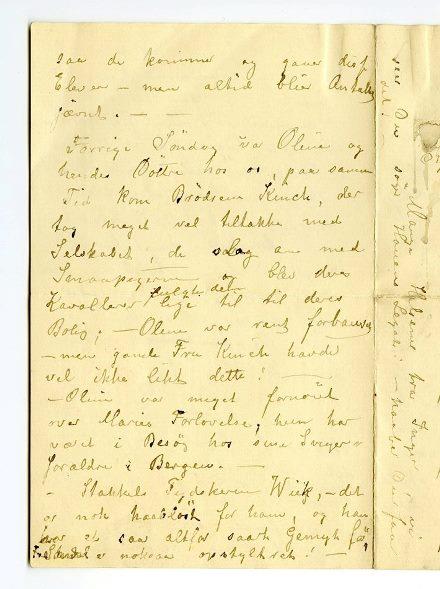 saa de kommer og gaaer disse
Elever – men altid blir Antallet
jævnt. – –
Forrige Søndag var Oline og
hendes Døttre hos os, paa samme
Tid kom Brødrene Kinch, der
tog meget vel tiltakke med
Selskabet, de slog an med
Smaapigerne og blev deres
Kavallerer fulgte dem lige til til deres
Bolig, – Oline var rent forbauset
– men gamle Fru Kinch havde
vel ikke likt dette! –
– Oline var meget fornøiet
over Marias Forlovelse, hun har
været i Besøg hos sine Sviger-
forældre i Bergen. –
– Stakkels Tydskeren Wiik, – det
er nok haabløst for ham, og han
har et saa altfor saart Gemyt
er nokaa opstyltret! –
Mange Hilsener fra Inger